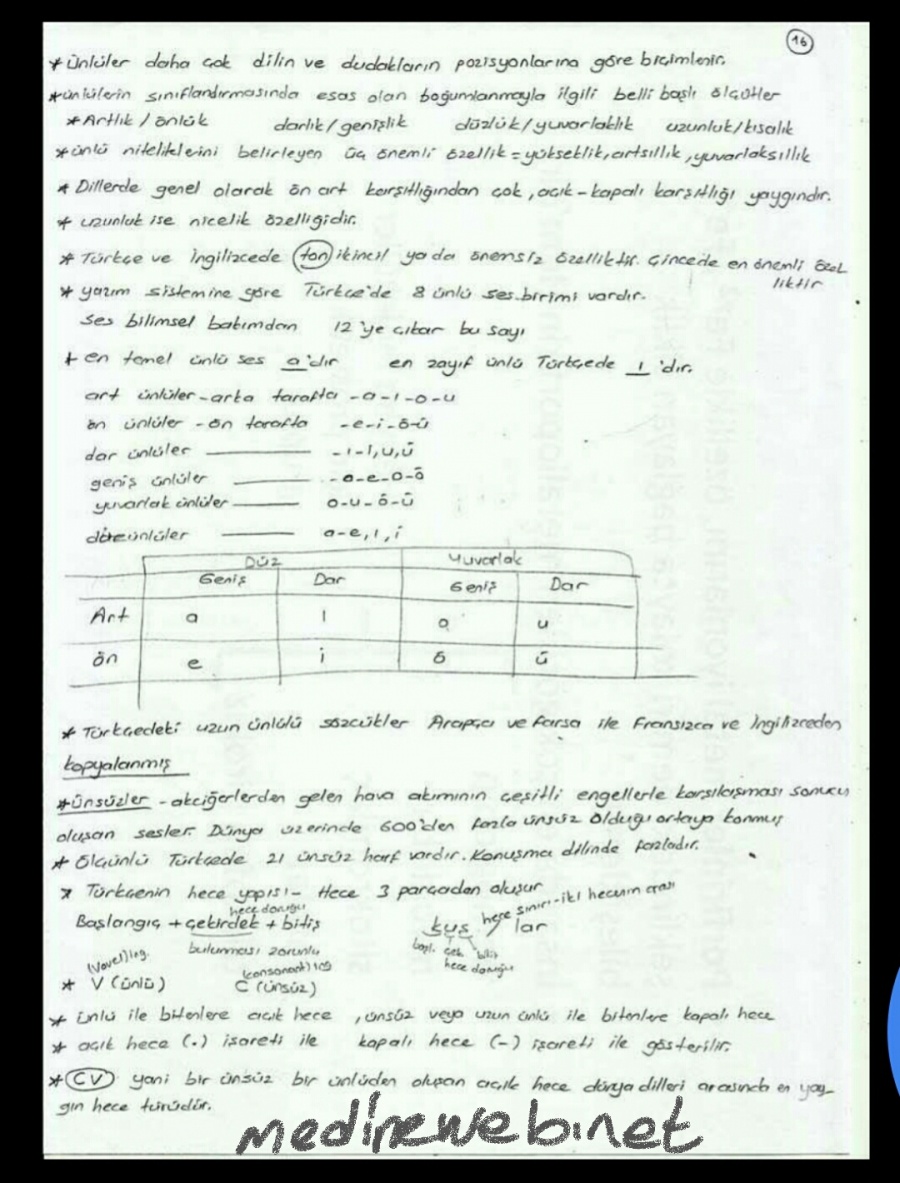 16
* Ünlüler daha çok dilin ve dudakların pozisyonlarına göre biçimlenir.
* ünlülerin sınıflandırmasında esas olan boğumlanmayla ilgili belli başlı ölçütler
* Artlık / önlük darlık/genişlik düzlük/yuvarlaklık uzunluk/kısalık
* ünlü niteliklerini belirleyen üç önemli özellik = yükseklik, artsıllık, yuvarlaksıllık
* Dillerde genel olarak ön art karşıtlığından çok, açık-kapalı karşıtlığı yaygındır.
* uzunluk ise nicelik özelliğidir.
* Türkçe ve İngilizcede (ton) ikincil ya da önemsiz özelliktir. Çincede en önemli özel
liktir
* yazım sistemine göre Türkçe'de 8 ünlü ses birimi vardır.
Ses bilimsel bakımdan 12'ye çıkar bu sayı
* en temel ünlü ses a'dır en zayıf ünlü Türkçede ı 'dır.
art ünlüler - arka tarafta - a - ı - o - u
ön ünlüler - ön tarafta - e - i - ö - ü
dar ünlüler - ı - i, u, ü
geniş ünlüler - a - e - o - ö
yuvarlak ünlüler o - u - ö - ü
düz ünlüler a - e, ı, i
Düz Yuvarlak
Geniş Dar Geniş Dar
Art a ı o u
ön e i ö ü
* Türkçedeki uzun ünlülü sözcükler Arapça ve Farsa ile Fransızca ve İngilizceden
kopyalanmış
* Ünsüzler - akciğerlerden gelen hava akımının çeşitli engellerle karşılaşması sonucu
oluşan sesler. Dünya üzerinde 600'den fazla ünsüz olduğu ortaya konmuş
* Ölçünlü Türkçede 21 ünsüz harf vardır. Konuşma dilinde fazladır.
* Türkçenin hece yapısı - Hece 3 parçadan oluşur
hece doruğu
Başlangıç + çekirdek + bitiş kuş / lar hece sınırı - iki hecenin arası
bulunması zorunlu başl. çek. bitiş
hece doruğu
(Vovel) ing. (consonant) ing
* V (ünlü) C (ünsüz)
* ünlü ile bitenlere açık hece, ünsüz veya uzun ünlü ile bitenlere kapalı hece
* açık hece (.) işareti ile kapalı hece (-) işareti ile gösterilir.
* (CV) yani bir ünsüz bir ünlüden oluşan açık hece dünya dilleri arasında en yay-
gın hece türüdür.
medinewebinet